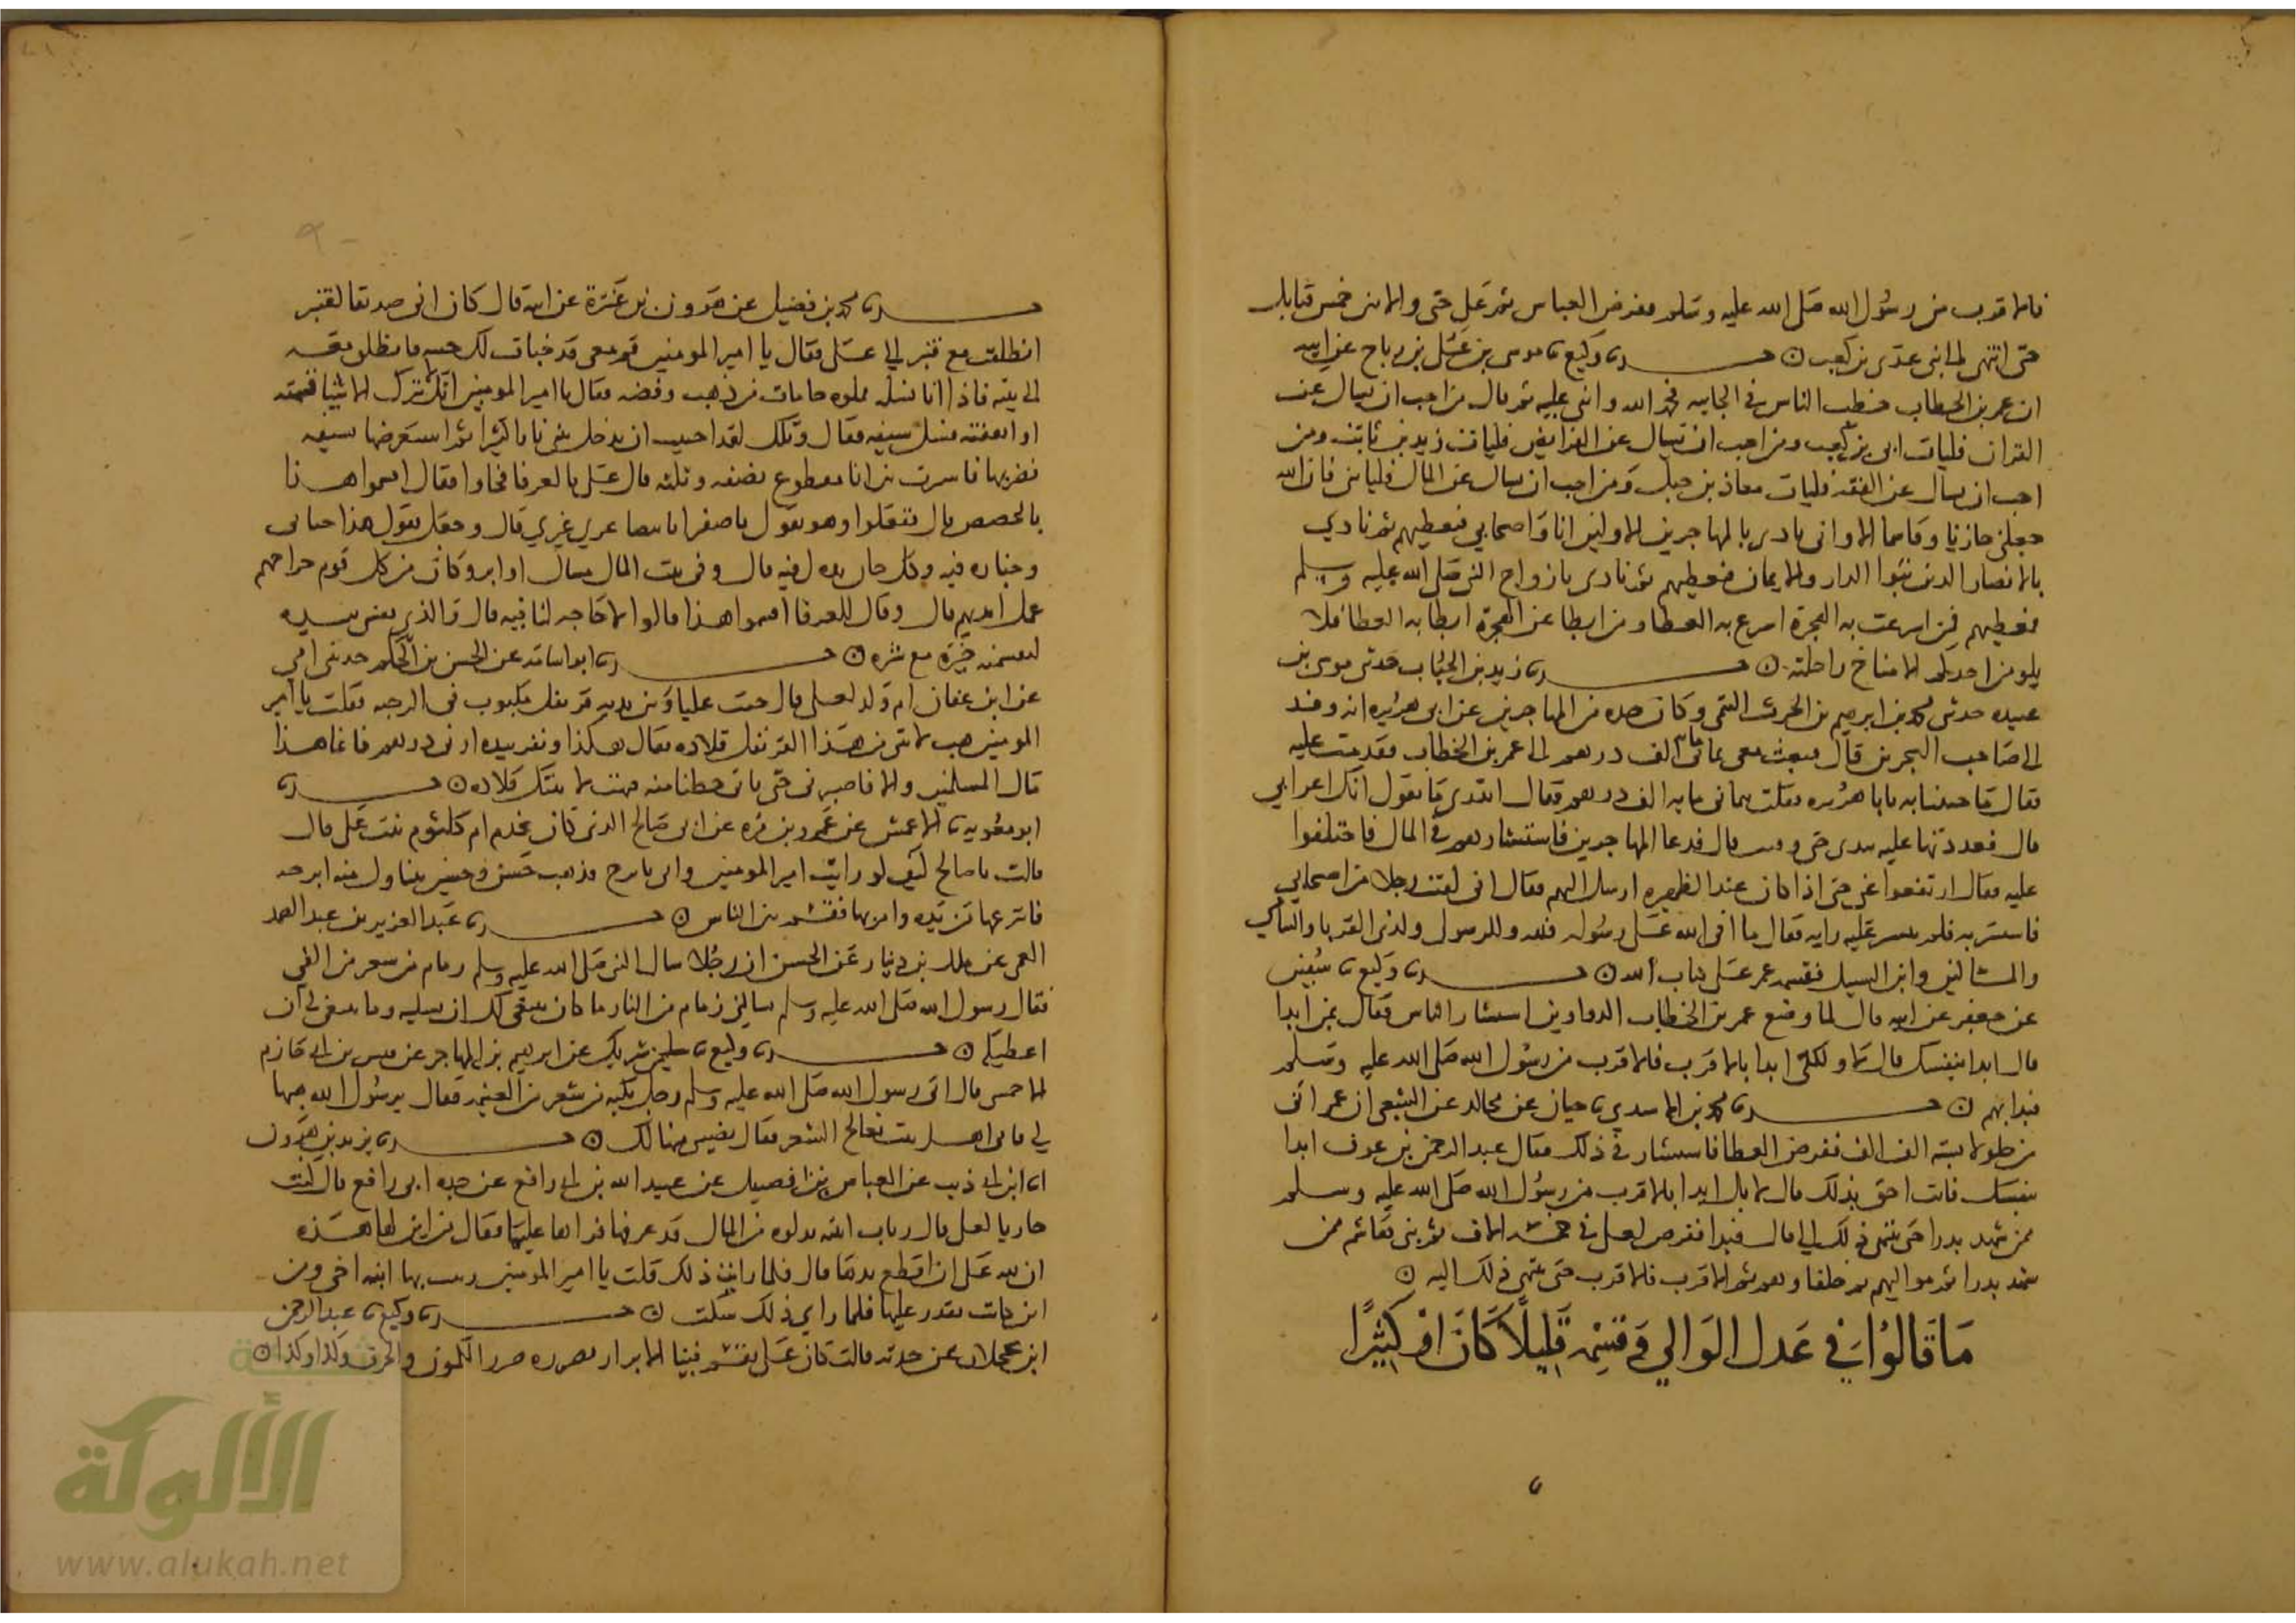 فالاقرب من رسول الله صلى الله عليه وسلم ففرض العباس ثم علي حتى والا بين خمس قبايل
حتى انتهى الى بني عدي بن كعب ن حـــدثنا وكيع ثنا موسى بن علي بن رباح عن ابيه
ان عمر بن الخطاب خطب الناس في الجابيه فحمد الله واثنى عليه ثم قال من احب ان يسال عن
القران فليات ابي بن كعب ومن احب ان يسال عن الفرايض فليات زيد بن ثابت ومن
احب ان يسال عن الفقه فليات معاذ بن جبل ومن احب ان يسال عن المال فلياتني فان الله
جعلني خازنا وقاسما الا واني بادي بالمهاجرين الاولين انا واصحابي فنعطيهم ثم نادي
بالانصار الذين تبوا الدار والايمان فنعطيهم ثم نادي بازواج النبي صلى الله عليه وسلم
فنعطيهم فمن اسرعت به الهجرة اسرع به العطا ومن ابطا عن الهجرة ابطا به العطا فلا
يلومن احدكم الا مناخ راحلته ن حـــدثنا زيد بن الحباب حدثني موسى بن
عبيده حدثني محمد بن ابرهيم بن الحرث التيمي وكان جده من المهاجرين عن ابي هريره انه وفد
الى صاحب البحرين قال فبعث معي بثماني مائة الف درهم الى عمر بن الخطاب فقدمت عليه
فقال ما جئتنا به يابا هريره فقلت بثماني مايه الف درهم فقال اتدري ما تقول انك اعرابي
قال فعددتها عليه بيدي حتى وفيت قال فدعا المهاجرين فاستشارهم في المال فاختلفوا
عليه فقال ارتفعوا عني حتى اذا كان عند الظهيره ارسل اليهم فقال اني لقيت رجلا من اصحابي
فاستشرته فلم ينتشر عليه رايه فقال ما افا الله على رسوله فلله وللرسول ولذي القربا واليتامي
والمساكين وابن السبيل فقسمه عمر على كتاب الله ن حـــدثنا وكيع ثنا سفين
عن جعفر عن ابيه قال لما وضع عمر بن الخطاب الدواوين استشار الناس فقال بمن ابدا
قال ابدا بنفسك قال لا ولكني ابدا بالاقرب فالاقرب من رسول الله صلى الله عليه وسلم
فبدا بهم ن حـــدثنا محمد بن الاسدي ثنا حبان عن مجالد عن الشعبي ان عمر اتي
من جلولا بستة الف الف ففرض العطا فاستشار في ذلك فقال عبد الرحمن بن عوف ابدا
بنفسك فانت احق بذلك قال لا بل ابدا بالاقرب من رسول الله صلى الله عليه وسلم
ممن شهد بدرا حتى ينتهي ذلك الي قال فبدا ففرض لعلي في خمسه الاف ثم بني هاشم ممن
شهد بدرا ثم مواليهم ثم حلفاوهم ثم الاقرب فالاقرب حتى ينتهي ذلك اليه ن
ما قالوا في عدل الوالي وقسمه قليلا كان او كثيرا
حـــدثنا محمد بن فضيل عن هرون بن عنترة عن ابيه قال كان اني صديقا لقنبر
انطلقت مع قنبر الى علي فقال يا امير المومنين قم معي قد خبات لك خبيه فانطلق معه
الى بيته فاذا انا بسله مملوه جامات من ذهب وفضه فقال يا امير المومنين انك لا تترك الا شيا قسمته
او انفقته فسل سيفه فقال ويلك لقد احببت ان تدخل بيتي نارا كثيرا ثم استعرضها بسيفه
فضربها فانتثرت بين اناء مقطوع نصفه وثلثه قال علي بالعرفا فجاوا فقال اقسموا هذا
بالحصص قال ففعلوا وهو يقول يا صفرا يا بيضا غري غيري قال وجعل يقول هذا جناي
وخياره فيه وكل جان يده لفيه قال وفي بيت المال مسال وابر وكان من كل قوم خراجهم
عمل ايديهم قال وقال للعرفا اقسموا هذا قالوا لا حاجه لنا فيه قال والذي نفسي بيده
لتقسمنه خيره مع شره ن حـــدثنا ابو اسامه عن الحسن بن الحكم حدثتني امي
عن ابن عفان ام ولد لعلي قال جيت عليا وبين يديه قرنفل مكبوب في الرحبه فقلت يا امير
المومنين هب لابنتي من هذا القرنفل قلاده فقال هكذا ونقر بيده ارني درهم فانما هذا
مال المسلمين والا فاصبري حتى ياتي حظنا منه فنهب لابنتك قلاده ن حـــدثنا
ابو معويه ثنا الاعمش عن عمرو بن مره عن ابي صالح الذي كان يخدم ام كلثوم بنت علي قال
قالت يا صالح كيف لو رايت امير المومنين واتي باترج فذهب حسن وحسين يتناول منه اترجه
فانتزعها من يده وامر بها فقسم بين الناس ن حـــدثنا عبد العزيز بن عبد الصمد
العمي عن ملك بن دينار عن الحسن ان رجلا سال النبي صلى الله عليه وسلم زمام من شعر من الفي
فقال رسول الله صلى الله عليه وسلم سالني زمام من النار ما كان ينبغي لك ان تسليه وما ينبغي لي ان
اعطيكه ن حـــدثنا وكيع ثنا سليمن شريك عن ابرهيم بن المهاجر عن قيس بن ابي حازم
الاحمسي قال اتي رسول الله صلى الله عليه وسلم رجل بكبه من شعر من الغنيمه فقال يرسول الله هبها
لي فانا اهل بيت نعالج الشعر فقال نصيبي منها لك ن حـــدثنا يزيد بن هرون
انا ابن ابي ذيب عن العباس بن الفضيل عن عبيد الله بن ابي رافع عن جده ابي رافع قال كنت
خازنا لعلي قال زينت ابنته بلولوه من المال قد عرفها فراها عليها فقال من اين لها هذه
ان لله علي ان اقطع يدها قال فلما رايت ذلك قلت يا امير المومنين زينت بها ابنة اخي ومن
اين كانت تقدر عليها فلما راي ذلك سكت ن حـــدثنا وكيع ثنا عبد الرحمن
ابن عجلان عن جدته قالت كان علي يقسم فينا الابزار بصرره صرر الكمون والحرف وكذا وكذا ن
الألوكة
www.alukah.net